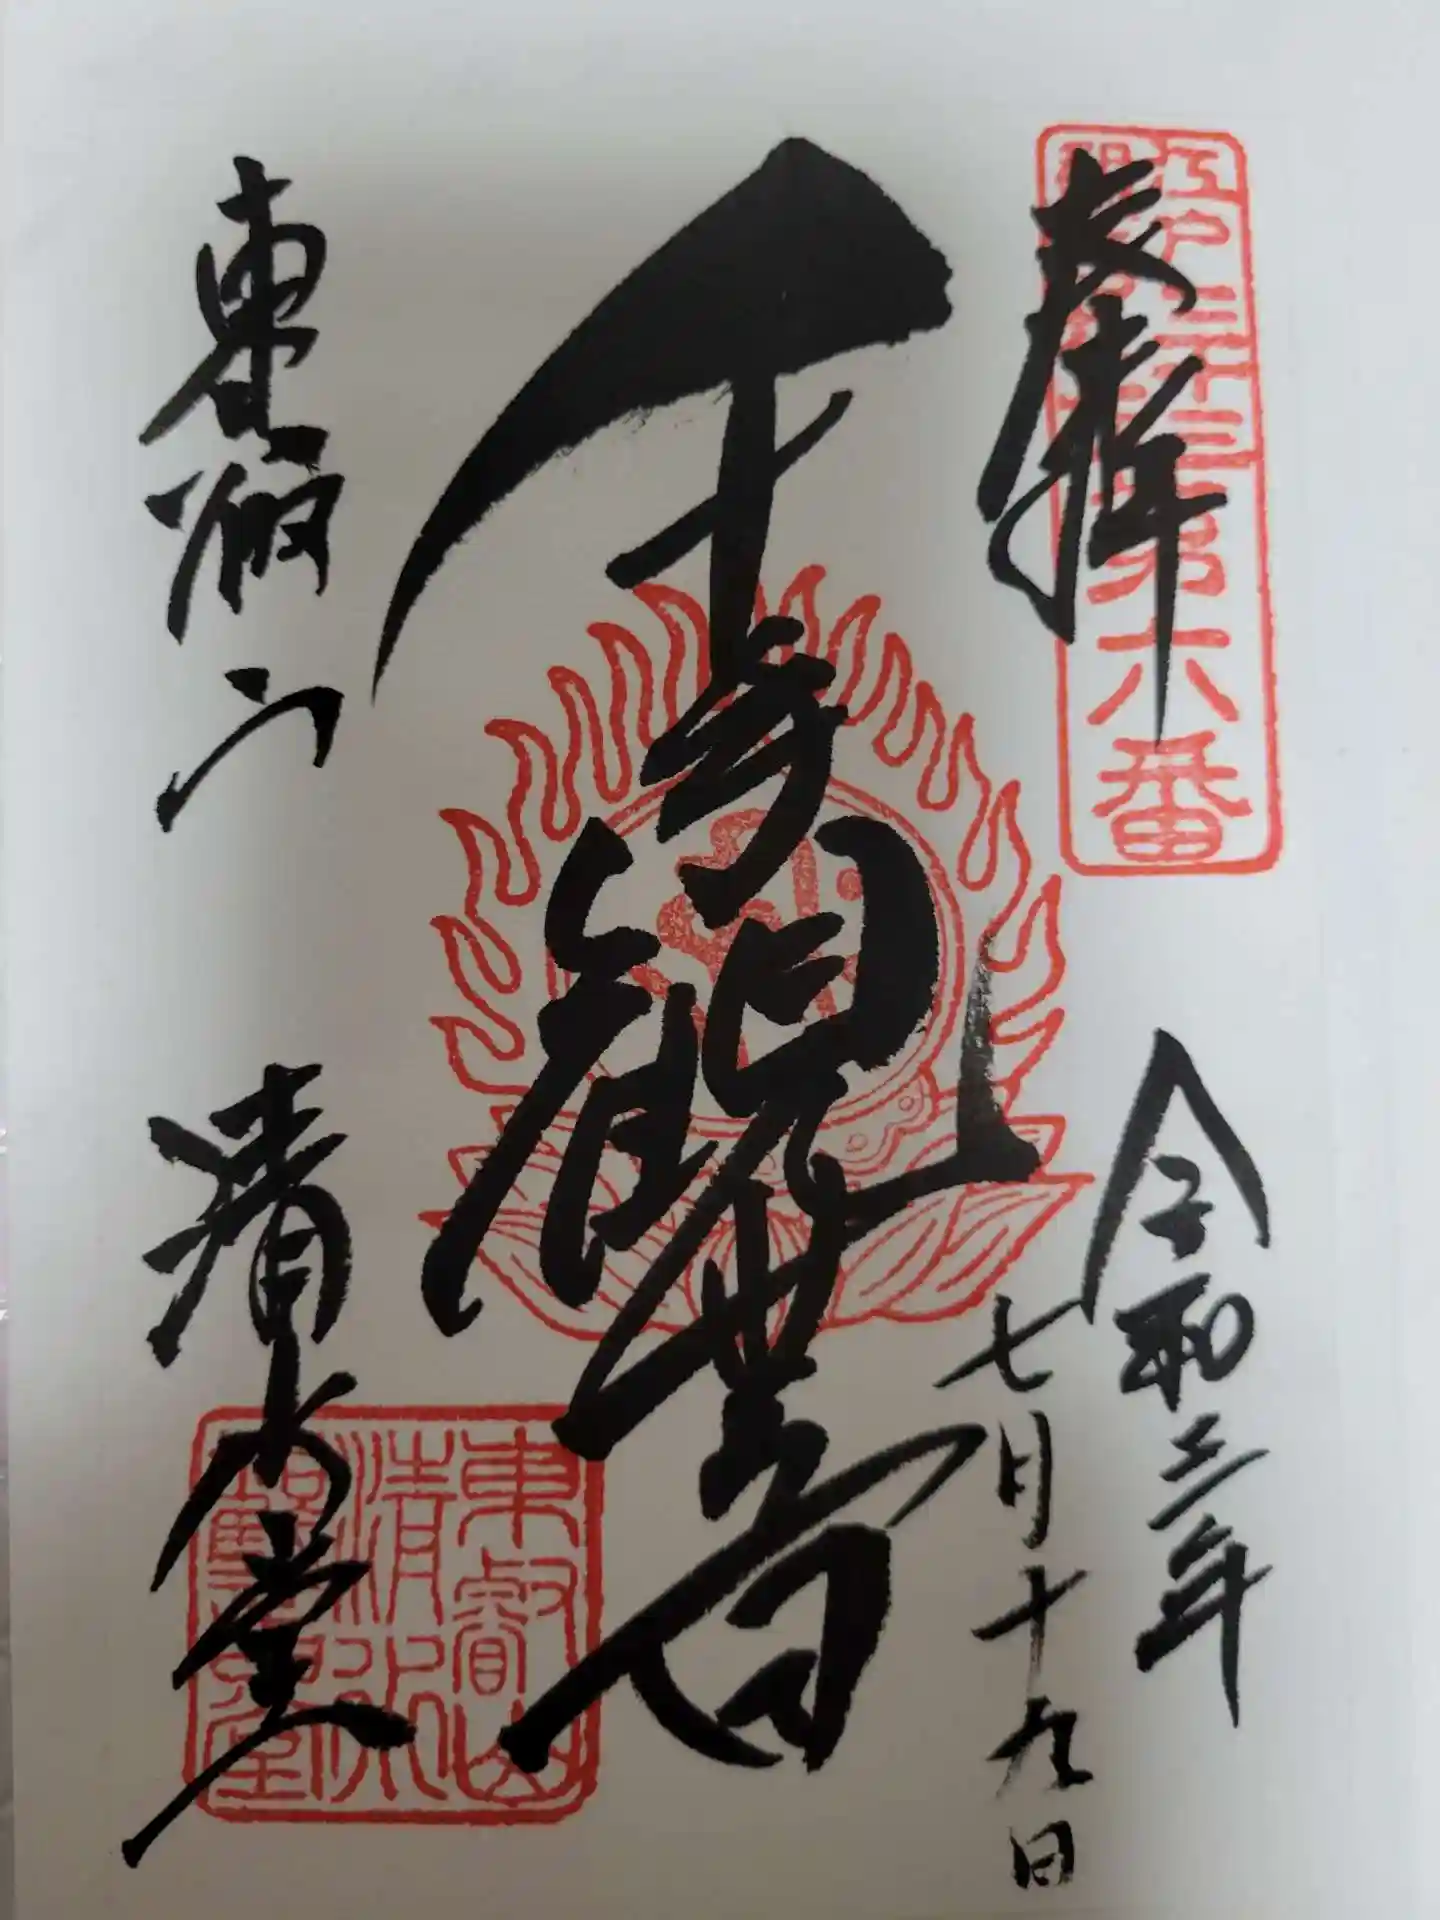 奉拝
江戸三十三所第六番
令和三年
七月十九日
千手観世音
東叡山
清水堂
東叡山
清水
観音堂